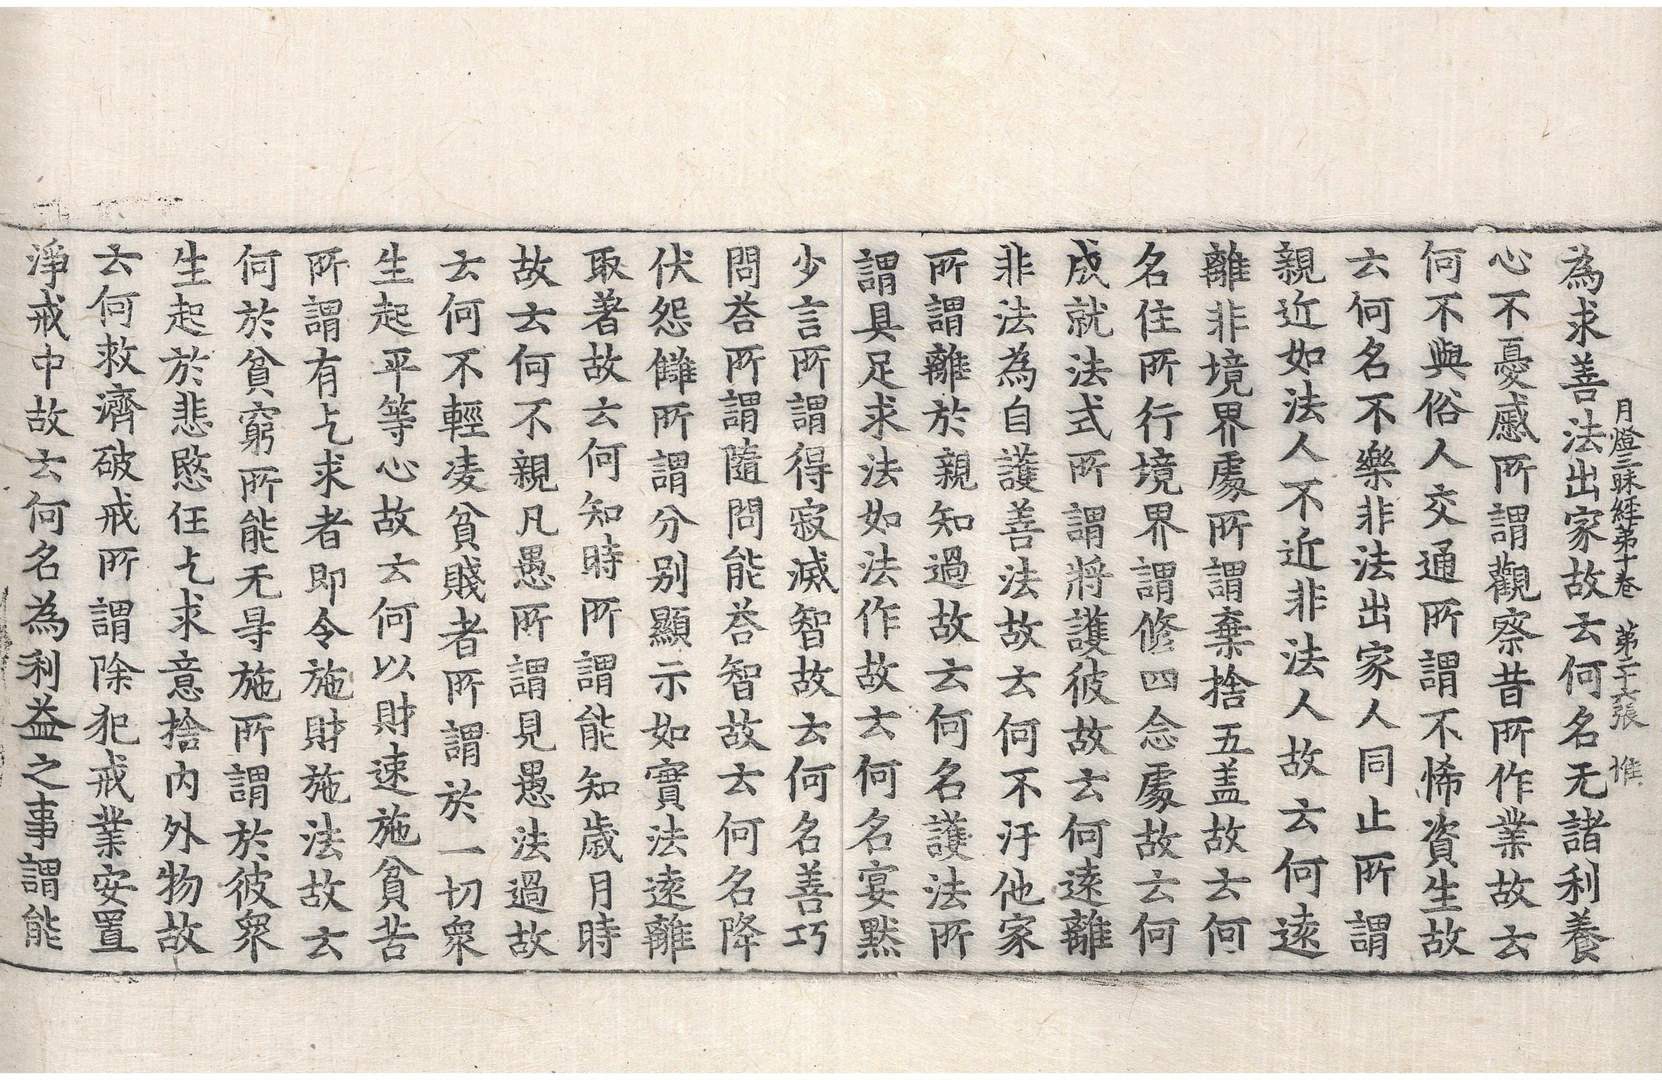 月燈三昧経苐十卷　苐二十六張　惟
為求善法出家故云何名无諸利養
心不憂慼所謂觀察昔所作業故云
何不與俗人交通所謂不悕資生故
云何名不樂非法出家人同止所謂
親近如法人不近非法人故云何遠
離非境界處所謂棄捨五盖故云何
名住所行境界謂修四念處故云何
成就法式所謂將護彼故云何遠離
非法為自護善法故云何不汙他家
所謂離於親知過故云何名護法所
謂具足求法如法作故云何名宴默
少言所謂得寂滅智故云何名善巧
問荅所謂隨問能荅智故云何名降
伏怨讎所謂分别顯示如實法遠離
取著故云何知時所謂能知歲月時
故云何不親凡愚所謂見愚法過故
云何不輕凌貧賤者所謂於一切衆
生起平等心故云何以財速施貧苦
所謂有乞求者即令施財施法故云
何於貧窮所能无㝵施所謂於彼衆
生起於悲愍任乞求意捨内外物故
云何救濟破戒所謂除犯戒業安置
淨戒中故云何名為利益之事謂能